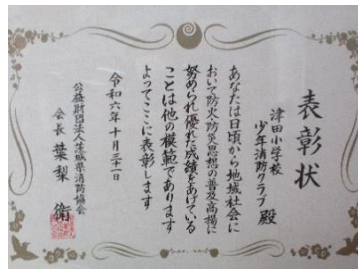 表彰状
津田小学校
少年消防クラブ 殿
あなたは日頃から地域社会に
おいて防火・防災思想の普及高揚に
努められ優れた成績をあげている
ことは他の模範であります
よってここに表彰します
令和六年十月三十一日
公益財団法人茨城県消防協会
会長 葉梨 衛